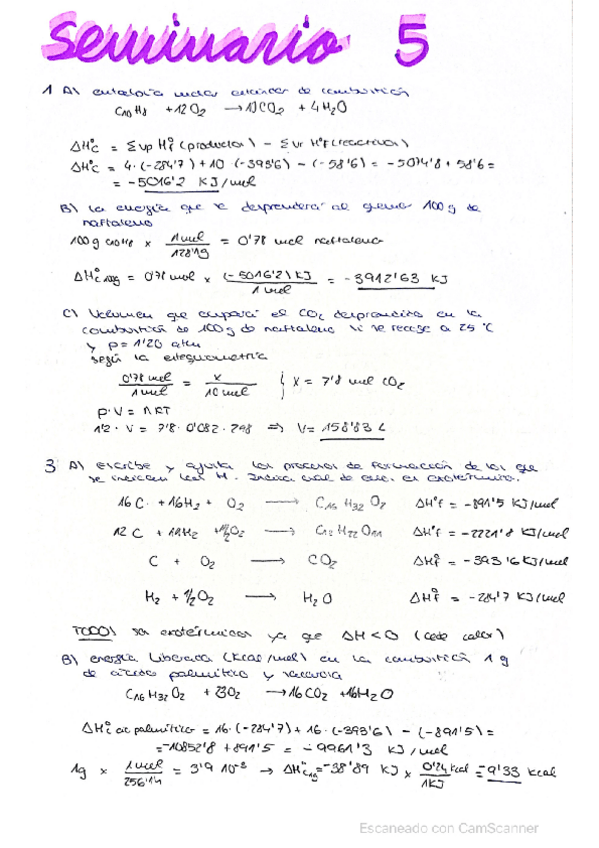 Seminario 5
1 A) entalpía molar estándar de combustión
C10H8 + 12O2 → 10CO2 + 4H2O
ΔHºc = Σνp Hºf (productos) - Σνr Hºf (reactivos)
ΔHºc = 4·(-284'7) + 10·(-393'6) - (-58'6) = -5074'8 + 58'6 =
= -5016'2 KJ/mol
B) la energía que se desprenderá al quemar 100 g de
naftaleno
100g C10H8 x 1 mol / 128'1g = 0'78 mol naftaleno
ΔHºc 100g = 0'78 mol x (-5016'2) KJ / 1 mol = -3912'63 KJ
C) Volumen que ocupará el CO2 desprendido en la
combustión de 100g de naftaleno si se recoge a 25 ºC
y p= 1'20 atm
según la estequiometría
0'78 mol / 1 mol = x / 10 mol } x = 7'8 mol CO2
P·V = nRT
1'2 · V = 7'8 · 0'082 · 298 => V= 158'83 L
3 A) escribe y ajusta los procesos de formación de los que
se indican las H. Indica cual de ellos es exotérmico.
16 C + 16H2 + O2 → C16H32O2 ΔHºf = -891'5 KJ/mol
12 C + 11H2 + 11/2O2 → C12H22O11 ΔHºf = -2221'8 KJ/mol
C + O2 → CO2 ΔHºf = -393'6 KJ/mol
H2 + 1/2O2 → H2O ΔHºf = -284'7 KJ/mol
TODOS son exotérmicos ya que ΔH < 0 (cede calor)
B) energía liberada (Kcal/mol) en la combustión 1 g
de ácido palmítico y sacarosa
C16H32O2 + 23O2 → 16CO2 + 16H2O
ΔHºc ác palmítico = 16·(-284'7) + 16·(-393'6) - (-891'5) =
= -10852'8 + 891'5 = -9961'3 KJ/mol
1g x 1 mol / 256'14 = 3'9 10⁻³ → ΔHºc 1g = -38'89 KJ x 0'24 kcal / 1KJ = -9'33 Kcal
Escaneado con CamScanner